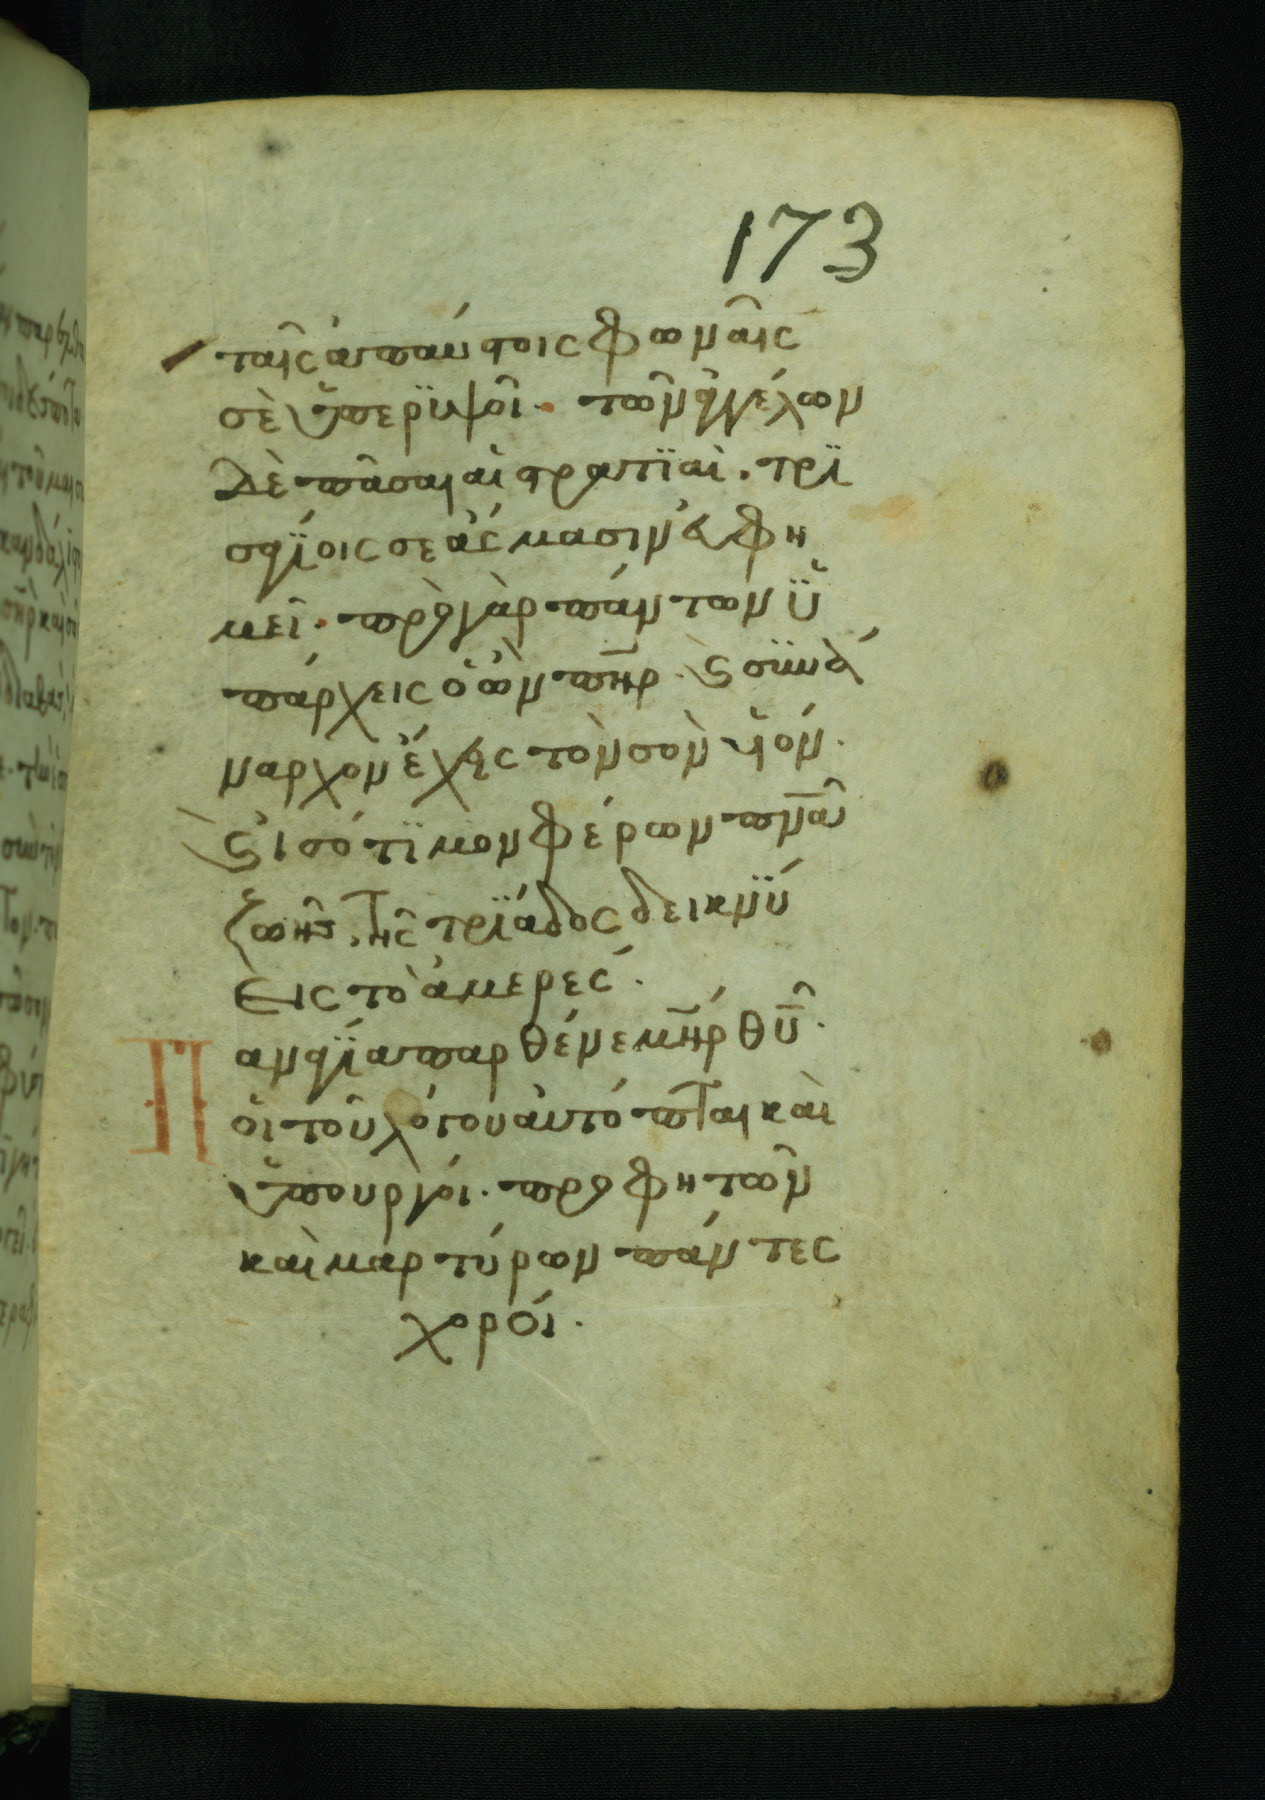 173
ταῖς ἀπαύστοις φωναῖς
σὲ ὑπερϋψοῖ· τῶν ἀγγέλων
δὲ πᾶσαι αἱ στρατϊαὶ· τρϊ
σαγΐοις σε ἄσμασιν ἀνυ
μεῖ· πρὸ γὰρ πάντων ὑ
πάρχεις ὁ ὢν πηρ· ϗ συνά
ναρχον ἔχεις τὸν σὸν υἱόν·
ϗ ἰσότϊμον φέρων πνα
ζωῆς, τῆς τρϊάδος δεικνύ
εις τὸ ἀμερές·
Παναγΐα παρθένε μηρ θυ·
οἱ τοῦ λόγου αὐτόπται καὶ
ὑπουργοί· προφητῶν
καὶ μαρτύρων πάντες
χοροί·